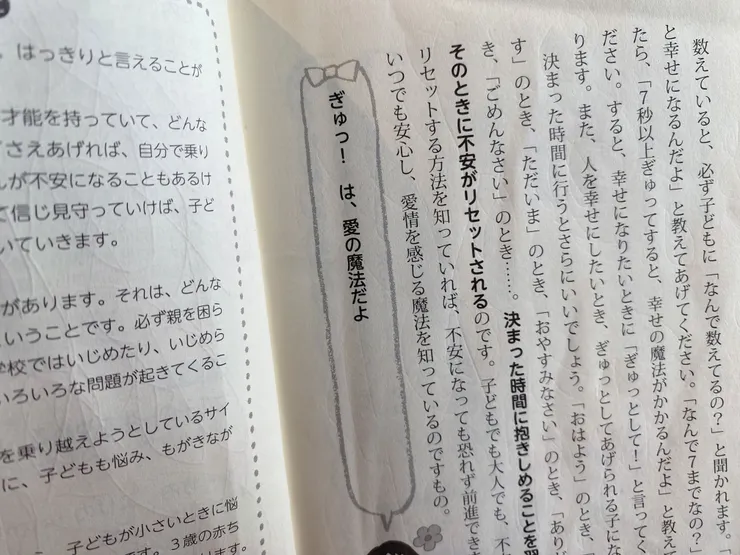 数えていると、必ず子どもに「なんで数えてるの？」と聞かれます。「
と幸せになるんだよ」と教えてあげてください。「なんで7までなの？」
たら、「7秒以上ぎゅってすると、幸せの魔法がかかるんだよ」と教え
ださい。すると、幸せになりたいときに「ぎゅっとして！」と言ってく
ります。また、人を幸せにしたいとき、ぎゅっとしてあげられる子にな
決まった時間に行うとさらにいいでしょう。「おはよう」のとき、「
す」のとき、「ただいま」のとき、「おやすみなさい」のとき、「あり
き、「ごめんなさい」のとき……。決まった時間に抱きしめることを習
そのときに不安がリセットされるのです。子どもでも大人でも、不
リセットする方法を知っていれば、不安になっても恐れず前進でき
いつでも安心し、愛情を感じる魔法を知っているのですもの。
ぎゅっ！ は、愛の魔法だよ
、はっきりと言えることが
才能を持っていて、どんな
さえあげれば、自分で乗り
んが不安になることもあるけ
て信じ見守っていけば、子ど
いていきます。
があります。それは、どんな
ということです。必ず親を困ら
学校ではいじめたり、いじめら
いろいろな問題が起きてくるこ
を乗り越えようとしているサイ
に、子どもも悩み、もがきなが
子どもが小さいときに悩
です。3歳の赤ち
けます。